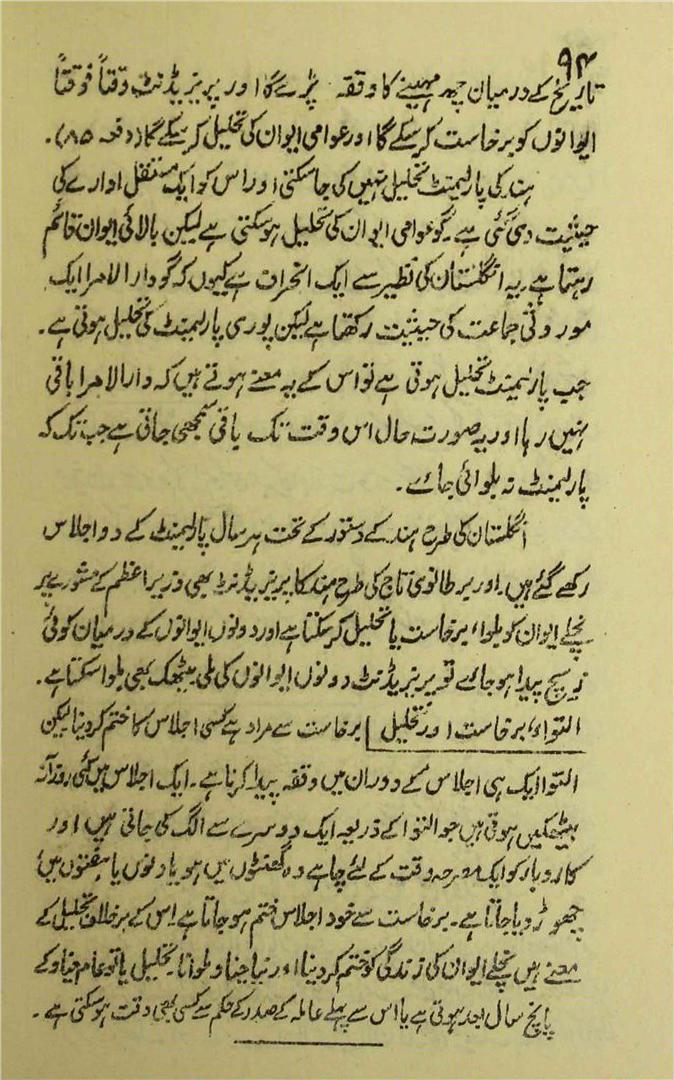 ۹۴
تاریخ کے درمیان چھ مہینے کا وقفہ پڑے گا اور پریزیڈنٹ وقتاً فوقتاً
ایوانوں کو برخاست کر سکے گا اور عوامی ایوان کی تحلیل کر سکے گا (دفعہ ۸۵)۔
ہند کی پارلیمنٹ تحلیل نہیں کی جا سکتی اور اس کو ایک مستقل ادارے کی
حیثیت دی گئی ہے۔ گو عوامی ایوان کی تحلیل ہو سکتی ہے لیکن بالائی ایوان قائم
رہتا ہے۔ یہ انگلستان کی نظیر سے ایک انحراف ہے کیوں کہ گو دارالامرا ایک
موروثی جماعت کی حیثیت رکھتا ہے لیکن پوری پارلیمنٹ کی تحلیل ہوتی ہے۔
جب پارلیمنٹ تحلیل ہوتی ہے تو اس کے یہ معنے ہوتے ہیں کہ دارالامرا باقی
نہیں رہا اور یہ صورت حال اس وقت تک باقی سمجھی جاتی ہے جب تک کہ
پارلیمنٹ نہ بلوائی جائے۔
انگلستان کی طرح ہند کے دستور کے تحت ہر سال پارلیمنٹ کے دو اجلاس
رکھے گئے ہیں۔ اور برطانوی تاج کی طرح ہند کا پریزیڈنٹ بھی وزیراعظم کے مشورے پر
نچلے ایوان کو بلوا، برخاست یا تحلیل کر سکتا ہے اور دونوں ایوانوں کے درمیان کوئی
پیدا ہو جائے تو پریزیڈنٹ دونوں ایوانوں کی ملی بیٹھک بھی بلوا سکتا ہے۔
التواء، برخاست اور تحلیل برخاست سے مراد ہے کسی اجلاس کا ختم کر دینا لیکن
التوا ایک ہی اجلاس کے دوران میں وقفہ پیدا کرنا ہے۔ ایک اجلاس میں کئی روزآنہ
بیٹھکیں ہوتی ہیں جو التوا کے ذریعہ ایک دوسرے سے الگ کی جاتی ہیں اور
کاروبار کو ایک وقت کے لئے چاہے وہ گھنٹوں میں ہو یا دنوں یا ہفتوں میں
چھوڑ دیا جاتا ہے۔ برخاست سے خود اجلاس ختم ہو جاتا ہے اس کے برخلاف تحلیل کے
معنے ہیں نچلے ایوان کی زندگی کو ختم کر دینا اور نیا چناؤ بلوانا۔ تحلیل یا تو عام چناؤ کے
پانچ سال بعد ہوتی ہے یا اس سے پہلے عاملہ کے صدر کے حکم سے کسی بھی وقت ہو سکتی ہے۔